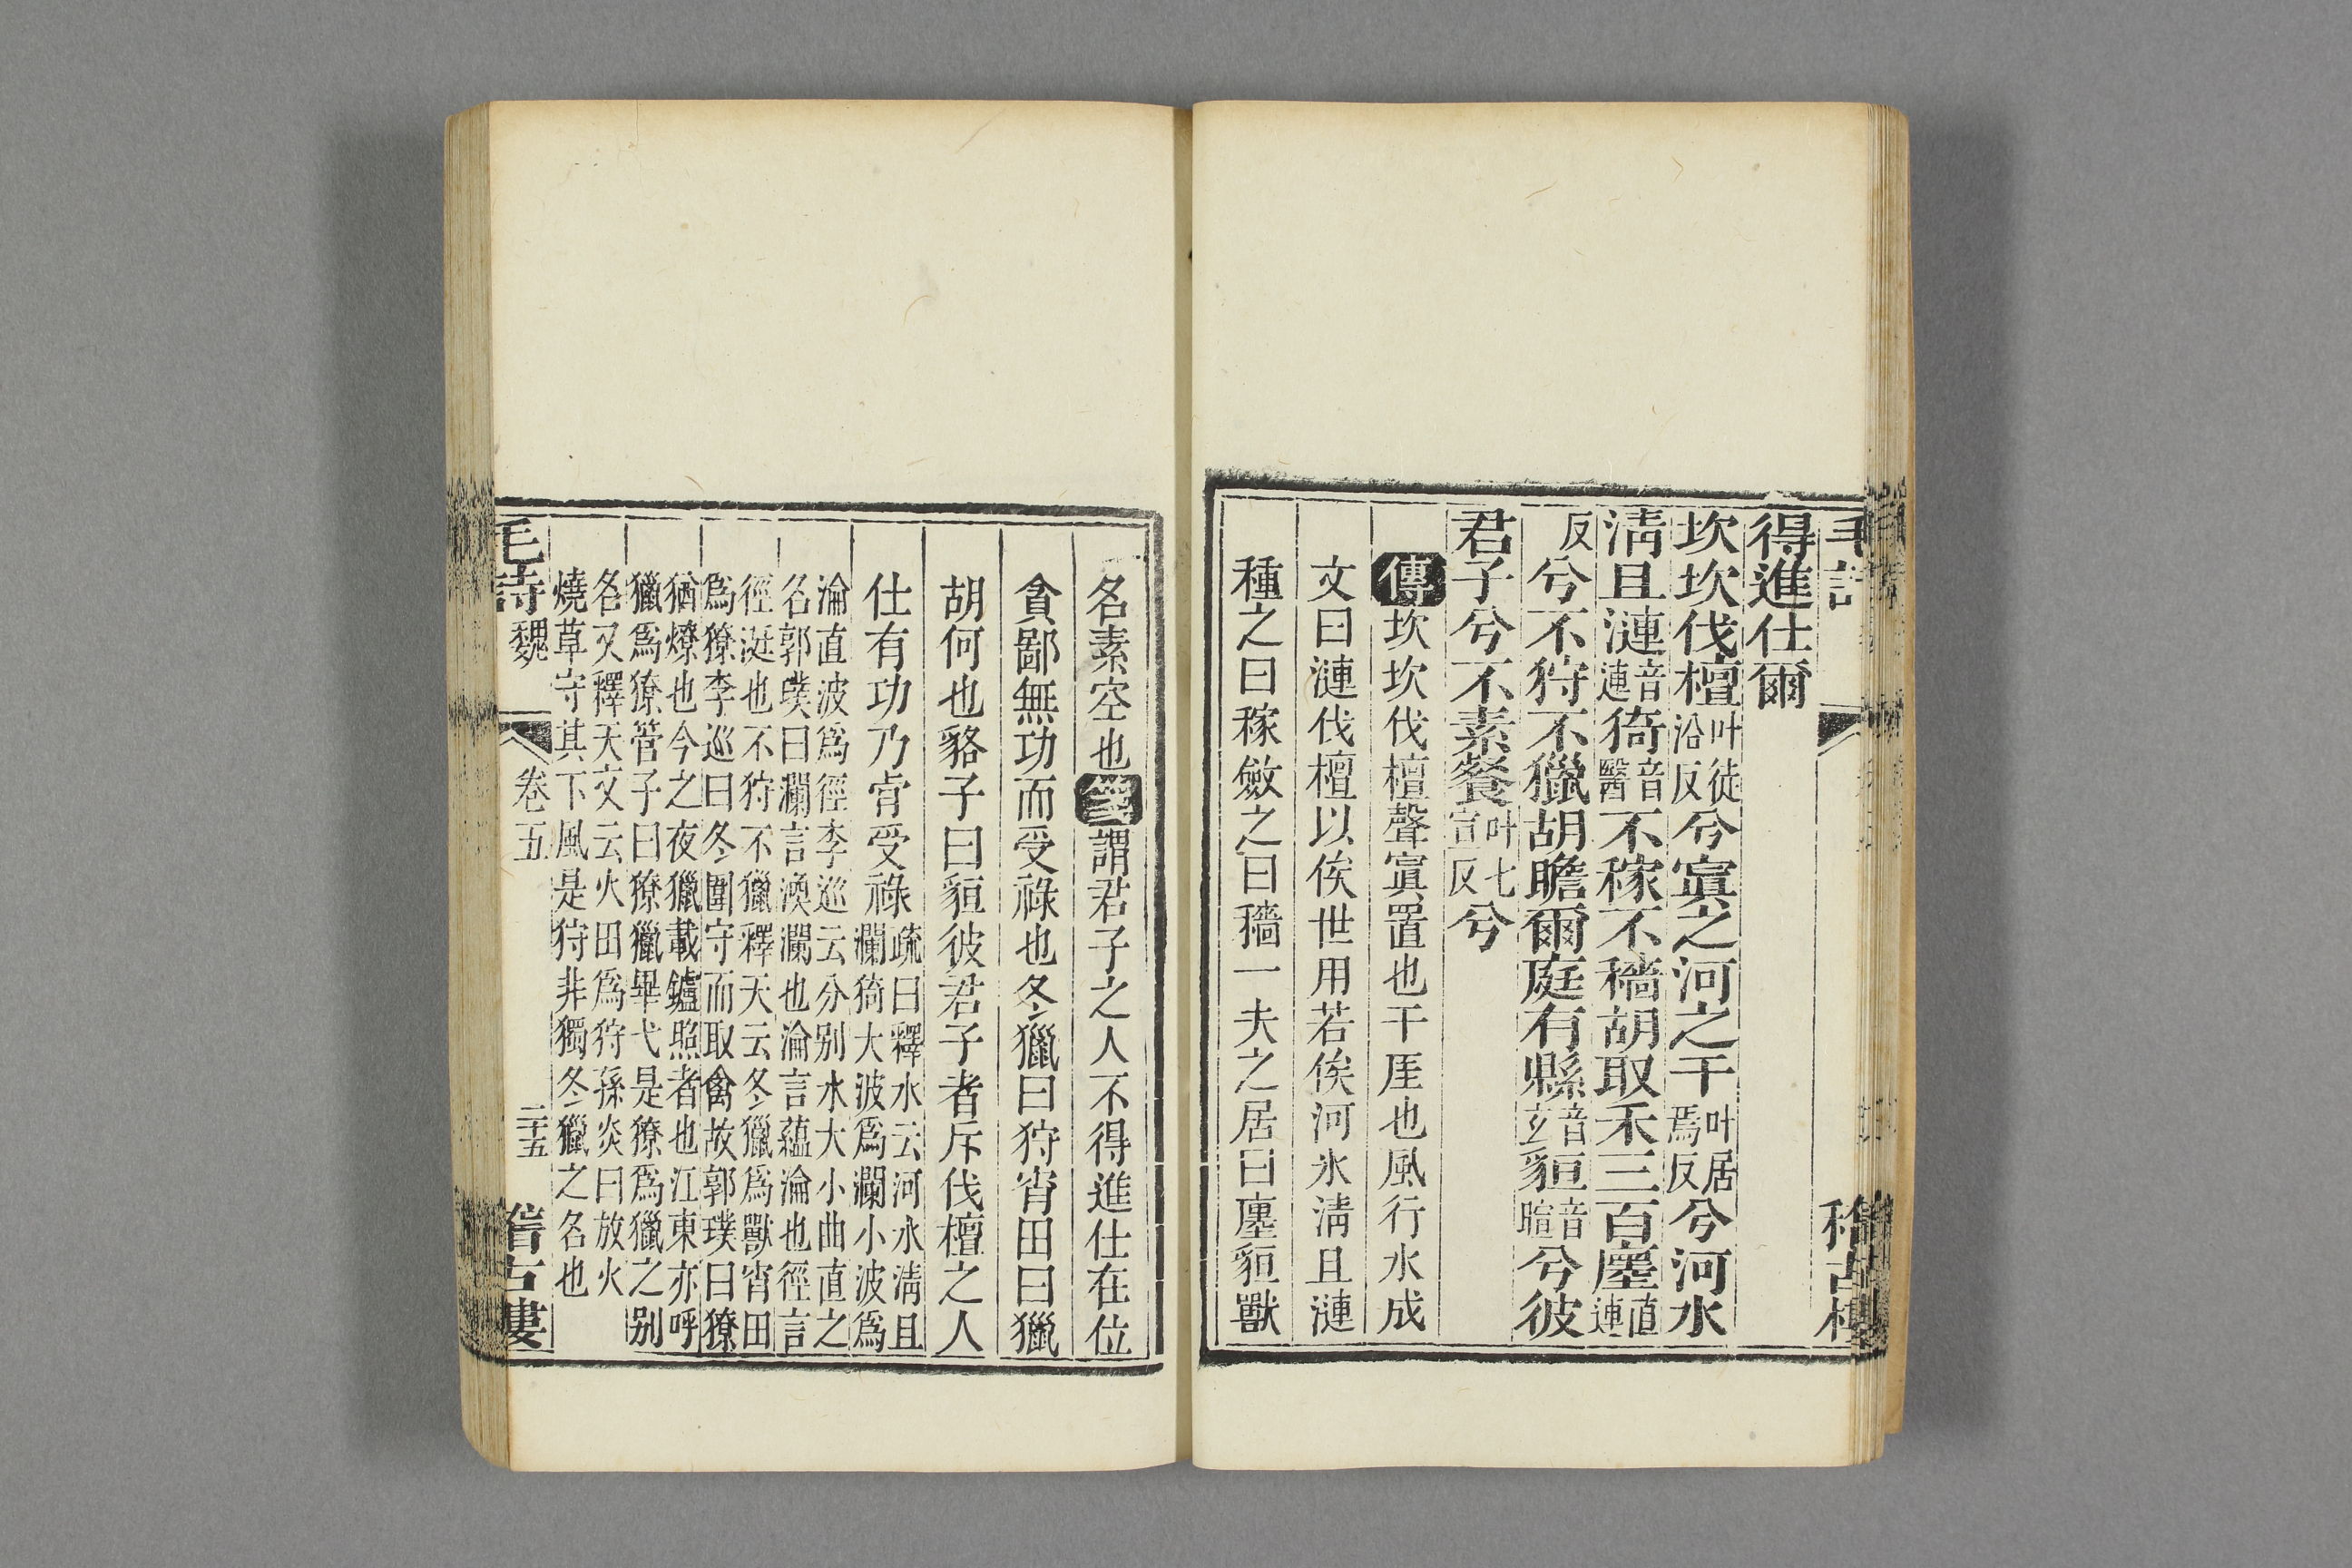 得進仕爾
坎坎伐檀叶徒沿反兮寘之河之干叶居焉反兮河水
淸且漣音連猗音醫不稼不穡胡取禾三百廛直連
反兮不狩不獵胡瞻爾庭有縣音玄貆音暄兮彼
君子兮不素餐叶七宣反兮
傳坎坎伐檀聲寘置也干厓也風行水成
文曰漣伐檀以俟世用若俟河水淸且漣
種之曰稼斂之曰穡一夫之居曰廛貆獸
名素空也箋謂君子之人不得進仕在位
貪鄙無功而受祿也冬獵曰狩宵田曰獵
胡何也貉子曰貆彼君子者斥伐檀之人
仕有功乃肎受祿疏曰釋水云河水淸且
瀾猗大波爲瀾小波爲
淪直波爲徑李巡云分别水大小曲直之
名郭璞曰瀾言渙瀾也淪言蘊淪也徑言
徑涏也不狩不獵釋天云冬獵爲獸宵田
爲獠李巡曰冬圍守而取禽故郭璞曰獠
猶燎也今之夜獵載鑪照者也江東亦呼
獵爲獠管子曰獠獵畢弋是獠爲獵之别
名又釋天文云火田爲狩孫炎曰放火
燒草守其下風是狩非獨冬獵之名也
毛詩 魏 卷五 二十五